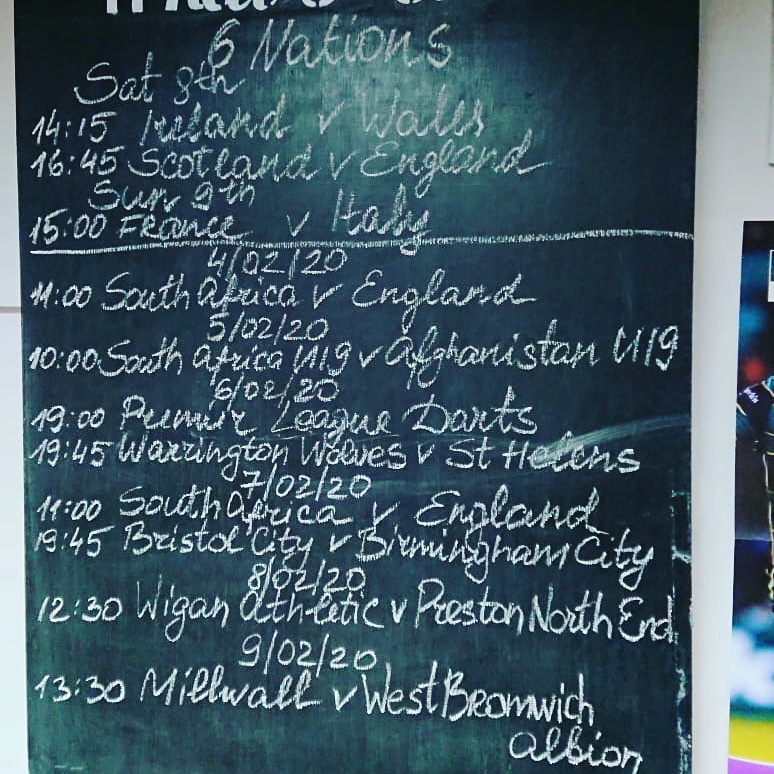 6 Nations
Sat 8th
14:15 Ireland v Wales
16:45 Scotland v England
Sun 9th
15:00 France v Italy
4/02/20
11:00 South Africa v England
5/02/20
10:00 South Africa U19 v Afghanistan U19
6/02/20
19:00 Premier League Darts
19:45 Warrington Wolves v St Helens
7/02/20
11:00 South Africa v England
19:45 Bristol City v Birmingham City
8/02/20
12:30 Wigan Athletic v Preston North End
9/02/20
13:30 Millwall v West Bromwich
Albion